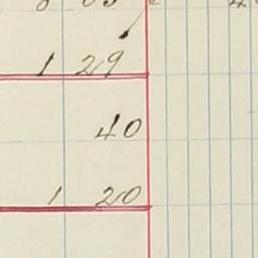 1 29
40
1 20